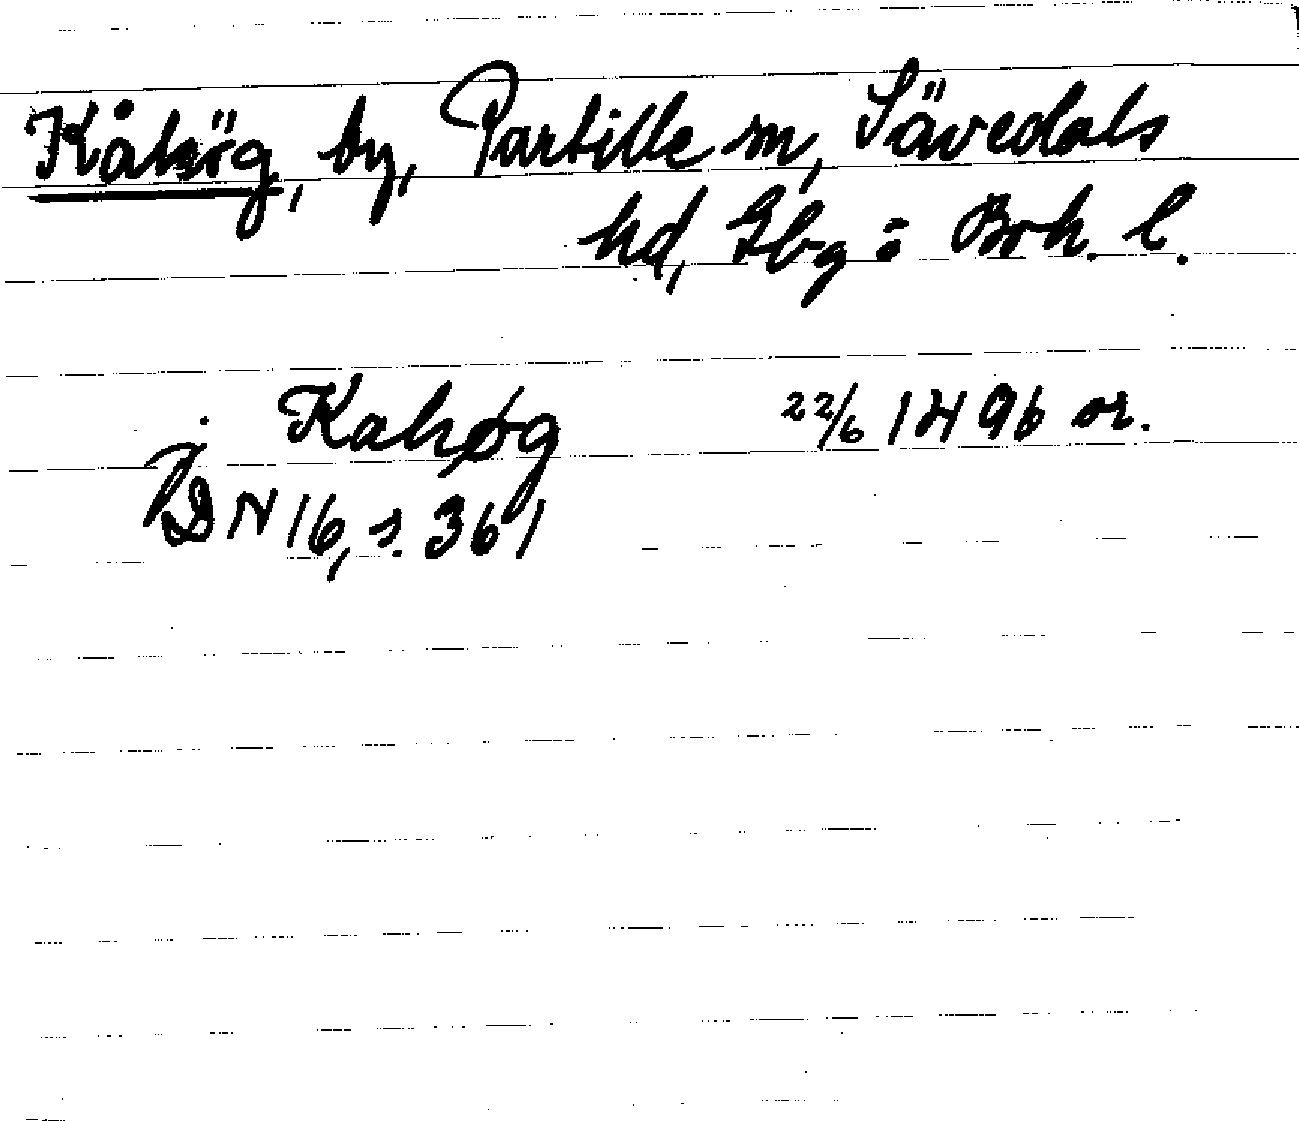 Kåhög, by, Partille sn, Sävedals
hd, Gbg o Boh. l.
j Kahøg 22/6 1496 or.
DN 16, s. 361